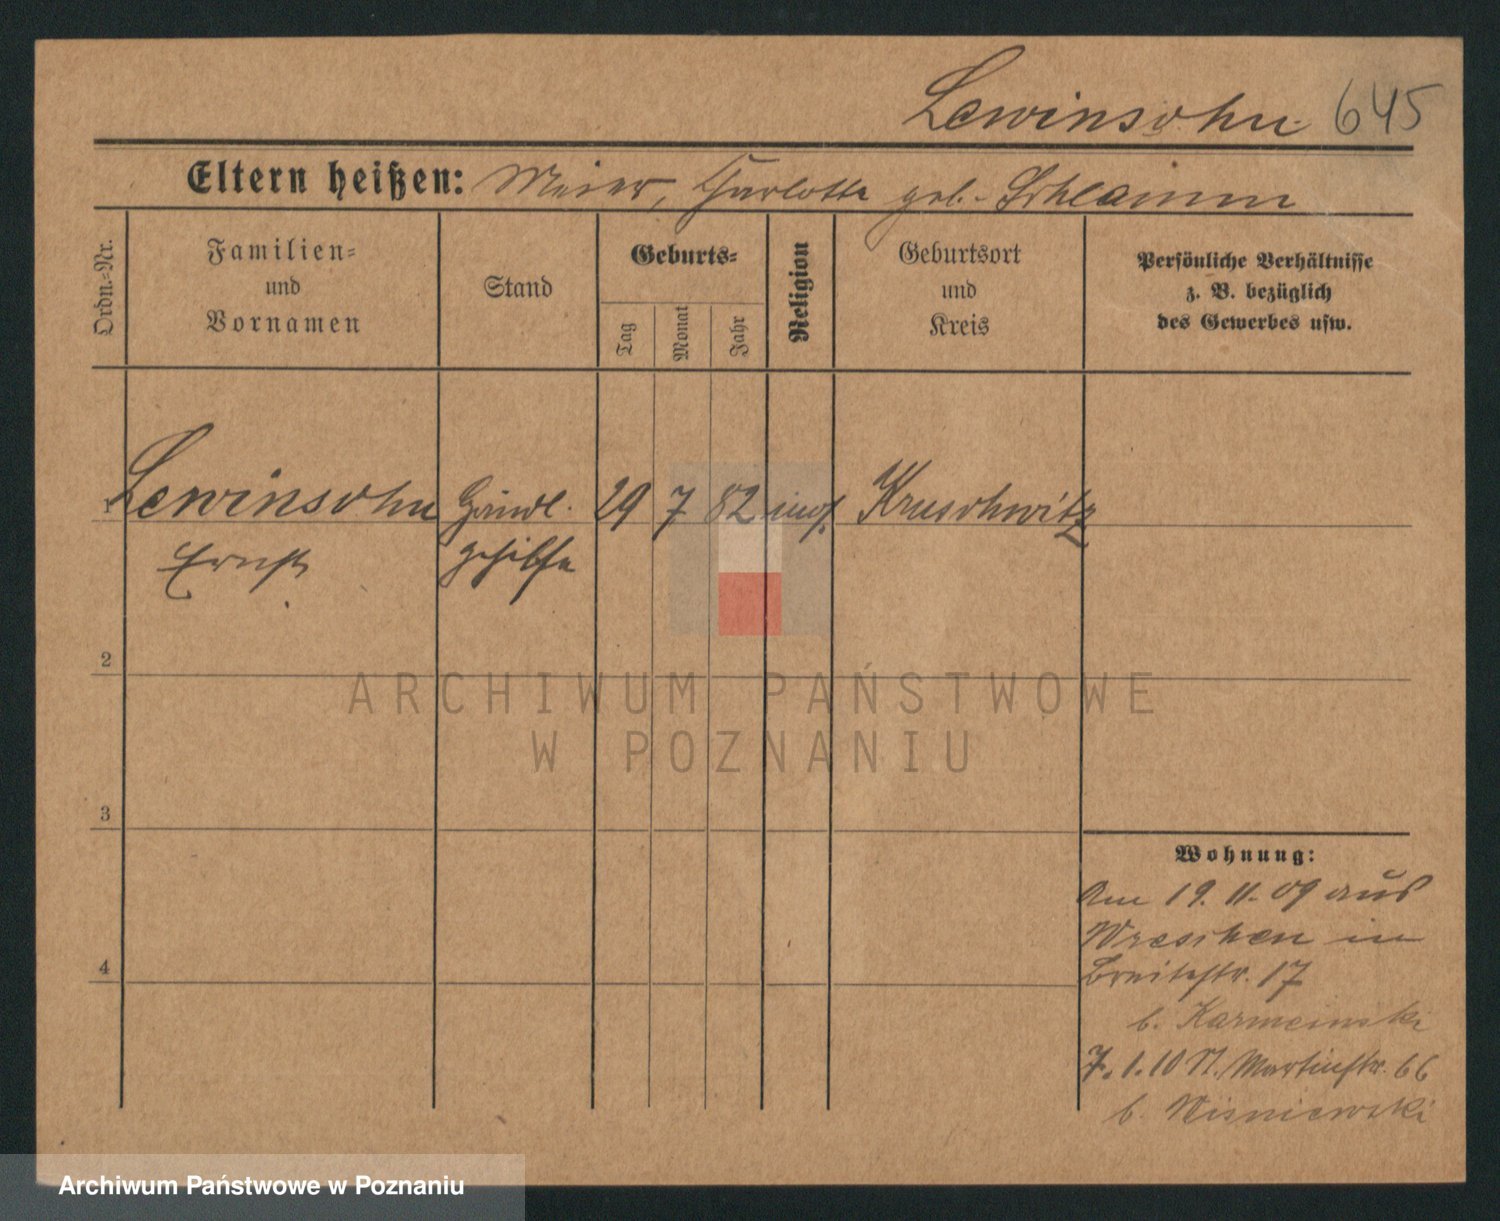 Lewinsohn 645
Eltern heißen: Meier, Charlotte geb. Schlamm
Ordn.-Nr.
Familien-
und
Vornamen
Stand
Geburts-
Tag
Monat
Jahr
Religion
Geburtsort
und
Kreis
Persönliche Verhältnisse
z. B. bezüglich
des Gewerbes usw.
1 Lewinsohn Handl. 29 7 82 mos. Kruschwitz
Ernst gehilfe
2
ARCHIWUM PAŃSTWOWE
W POZNANIU
3
Wohnung:
Am 19.11.09 aus
Wreschen in
4
Breitestr. 17
b. Karminski
7.1.10 St. Martinstr. 66
b. Wisniewski
Archiwum Państwowe w Poznaniu